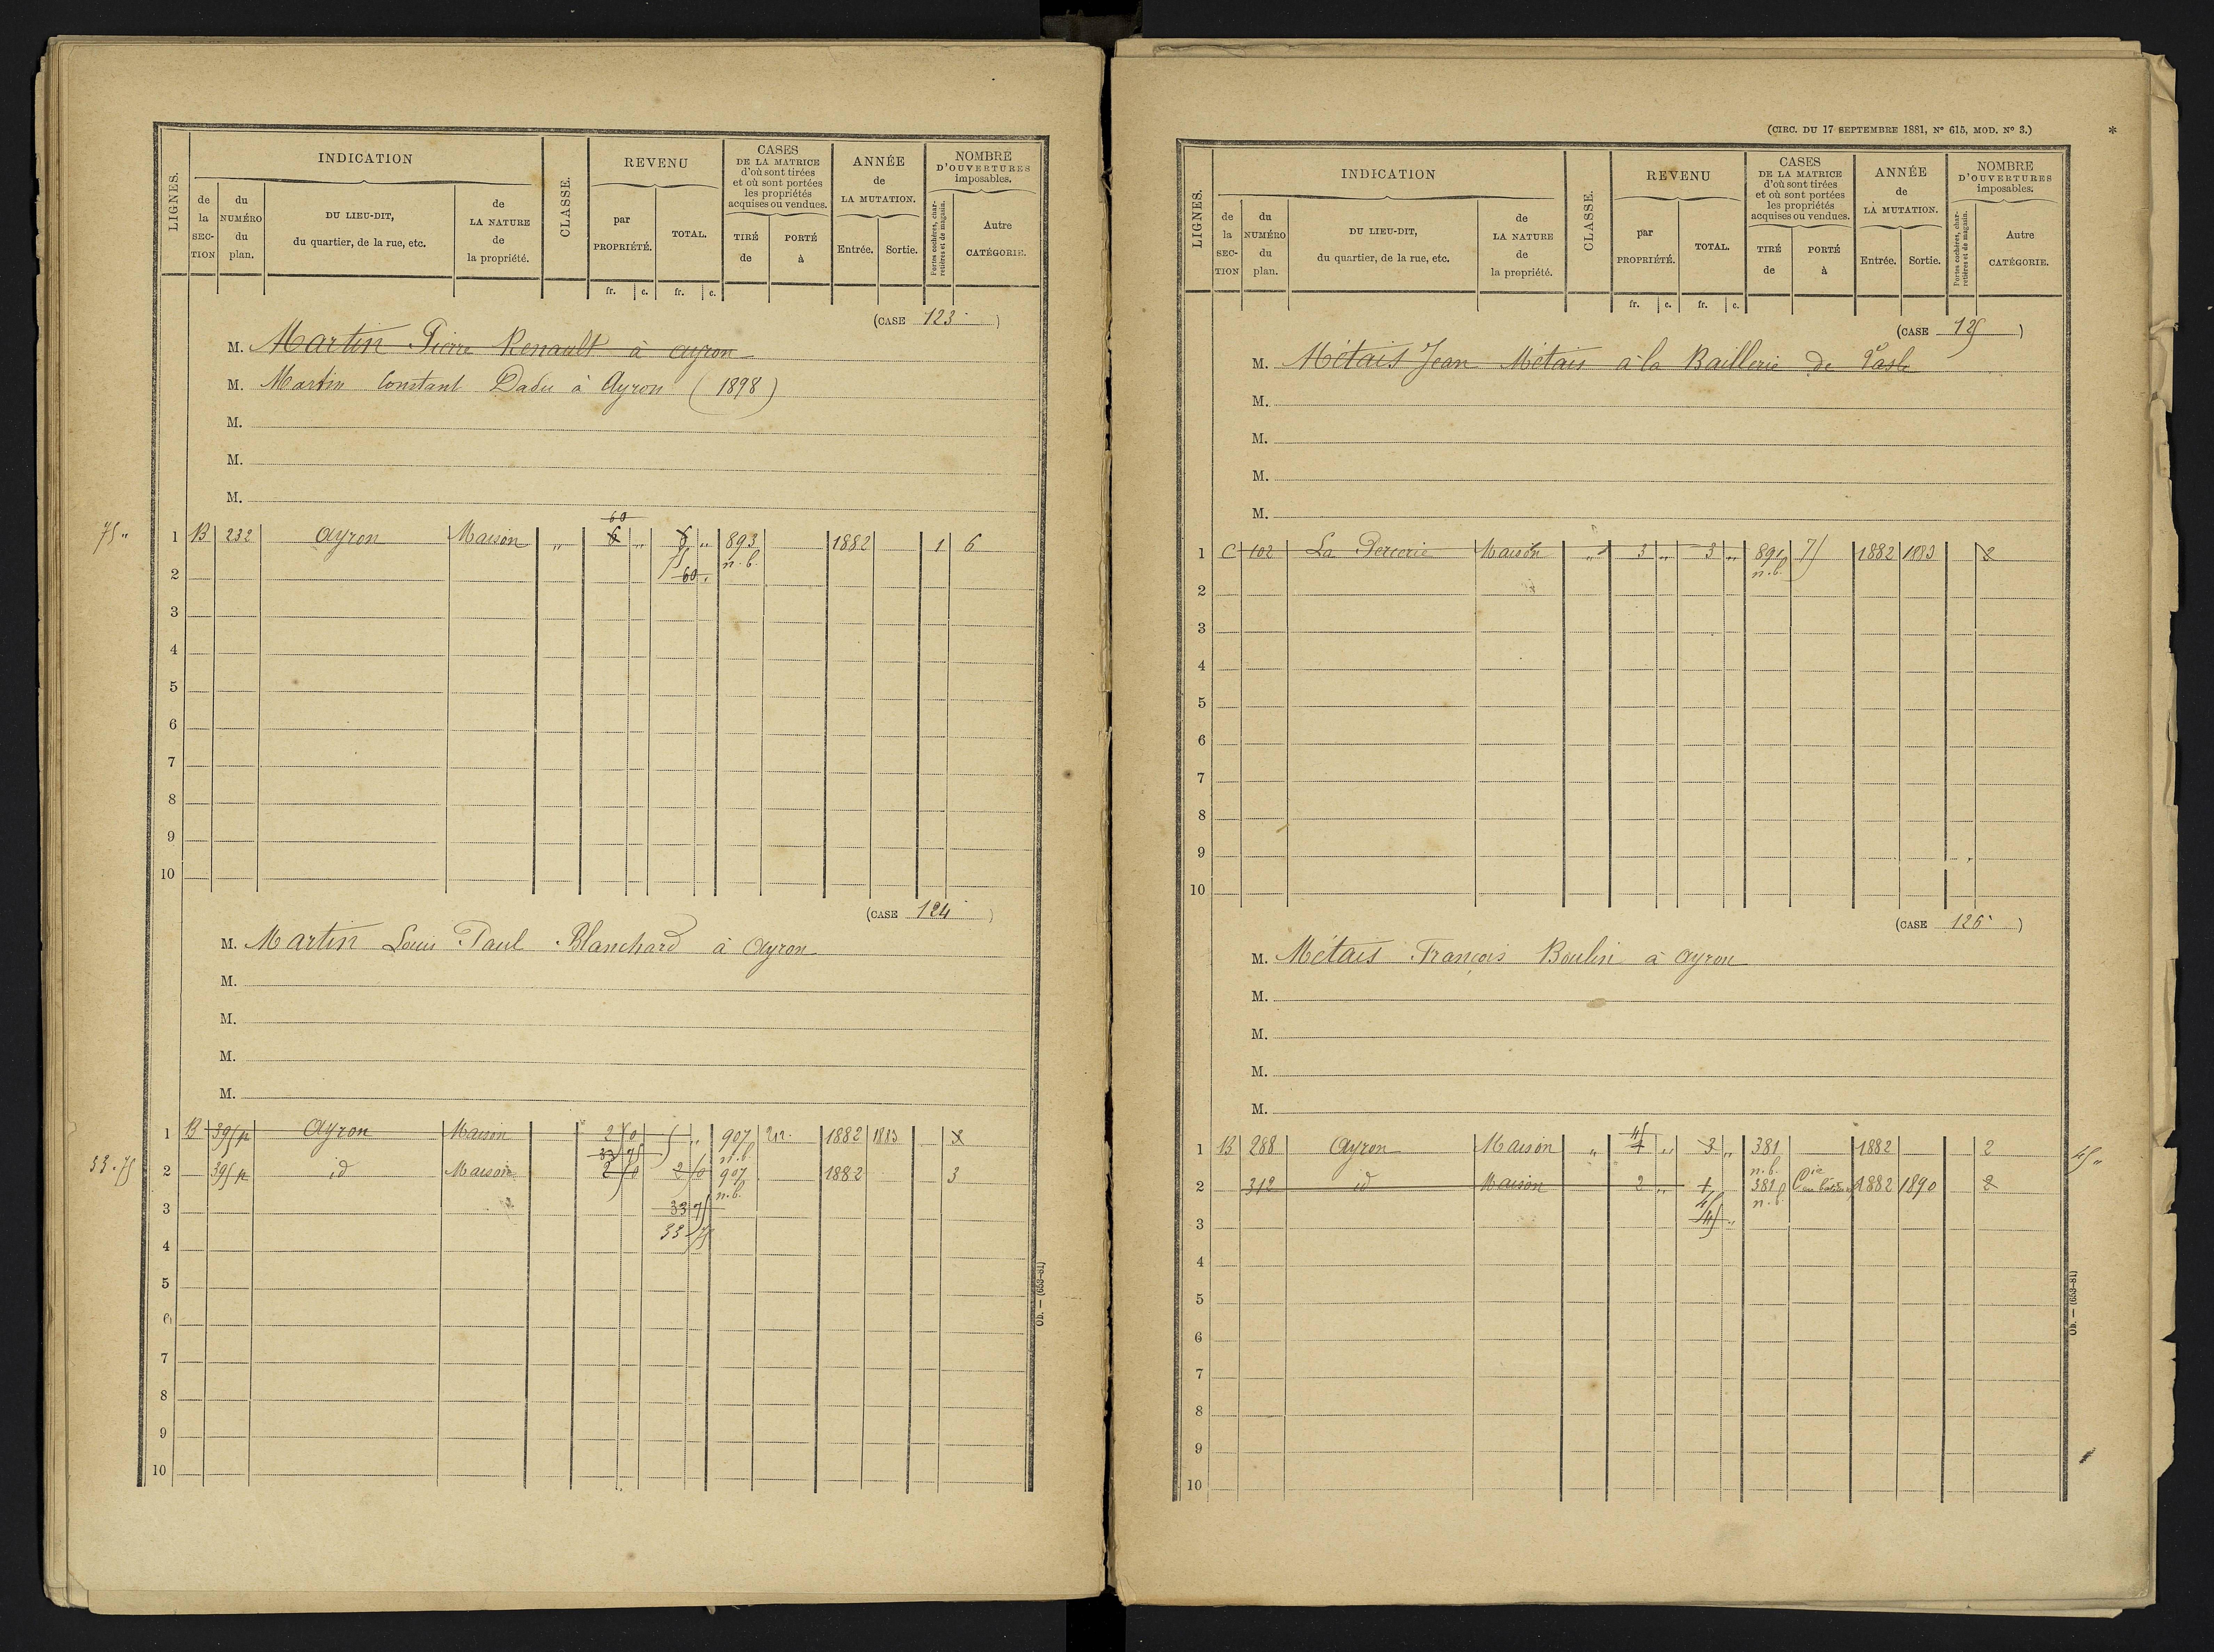 LIGNES.
INDICATION
de la SECTION
du NUMÉRO du plan.
DU LIEU-DIT, du quartier, de la rue, etc.
de LA NATURE de la propriété.
CLASSE.
REVENU
par PROPRIÉTÉ.
TOTAL.
fr. c. fr. c.
CASES DE LA MATRICE d'où sont tirées et où sont portées les propriétés acquises ou vendues.
TIRÉ de
PORTÉ à
ANNÉE de LA MUTATION.
Entrée.
Sortie.
NOMBRE D'OUVERTURES imposables.
Portes cochères, charretières et de magasin.
Autre CATÉGORIE.
(CASE 123)
M. Martin Pierre Renault à ayron
M. Martin Constant Dadu à Ayron (1898)
M.
M.
M.
60
75 " 1 B 232 Ayron Maison " 6 " 6 " 893 1882 1 6
75 n.b.
2 60 "
3
4
5
6
7
8
9
10
(CASE 124)
M. Martin Louis Paul Blanchard à Ayron
M.
M.
M.
M.
1 B 395p Ayron Maison 2 50 5 " 907 212 1882 1883 2
33 75 n.b.
33.75 2 395p id Maison 2 50 2 50 907 1882 3
n.b.
3 33 75
33 75
4
5
6
7
8
9
10
Ob. — (653-81)
(CIRC. DU 17 SEPTEMBRE 1881, Nº 615, MOD. Nº 3.) *
LIGNES.
INDICATION
de la SECTION
du NUMÉRO du plan.
DU LIEU-DIT, du quartier, de la rue, etc.
de LA NATURE de la propriété.
CLASSE.
REVENU
par PROPRIÉTÉ.
TOTAL.
fr. c. fr. c.
CASES DE LA MATRICE d'où sont tirées et où sont portées les propriétés acquises ou vendues.
TIRÉ de
PORTÉ à
ANNÉE de LA MUTATION.
Entrée.
Sortie.
NOMBRE D'OUVERTURES imposables.
Portes cochères, charretières et de magasin.
Autre CATÉGORIE.
(CASE 125)
M. Métais Jean Métais à la Baillerie de
M.
M.
M.
M.
1 C 102 La Maison " 3 " 3 " 891 75 1882 1883 2
n.b.
2
3
4
5
6
7
8
9
10
(CASE 126)
M. Métais François Boulin à ayron
M.
M.
M.
M.
45
1 B 288 Ayron Maison " 1 " 3 " 381 1882 2 45 "
n.b.
2 312 id Maison 2 " 1 381 1882 1890 2
45 n.b.
3 45 "
4
5
6
7
8
9
10
Ob. — (653-81)